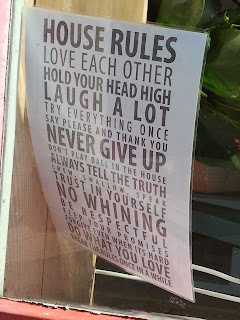 HOUSE RULES
LOVE EACH OTHER
HOLD YOUR HEAD HIGH
LAUGH A LOT
TRY EVERYTHING ONCE
SAY PLEASE AND THANK YOU
NEVER GIVE UP
DON'T PLAY BALL IN THE HOUSE
ALWAYS TELL THE TRUTH
TRUST IN YOURSELF
NO WHINING
BE RESPECTFUL
DO WHAT YOU LOVE
ONCE IN A WHILE